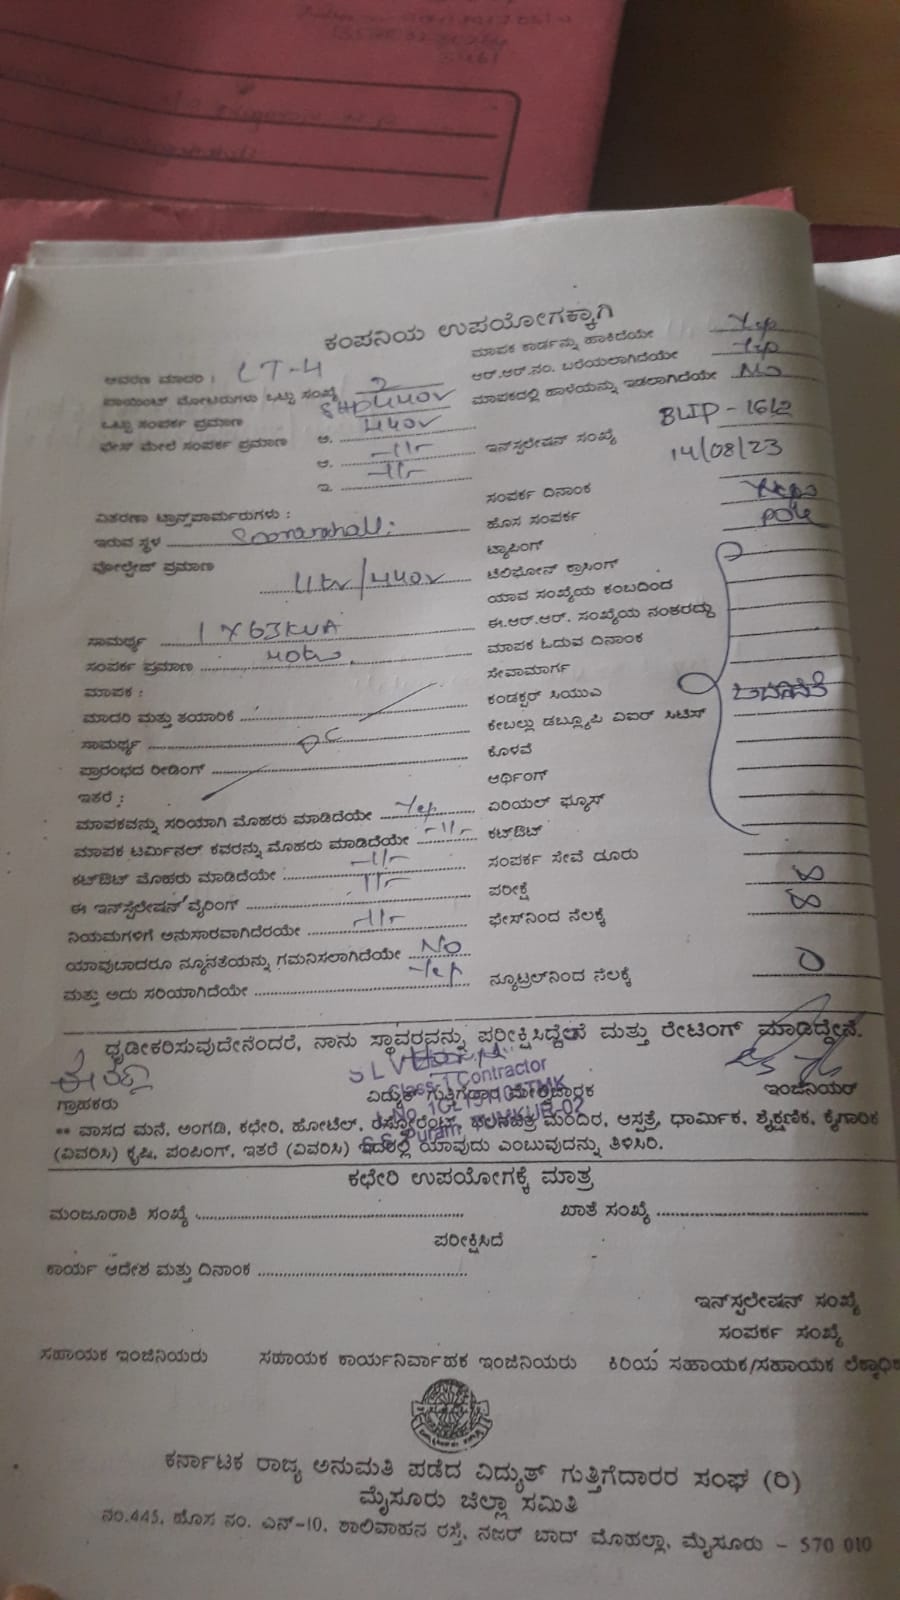 ಕಂಪನಿಯ ಉಪಯೋಗಕ್ಕಾಗಿ
ಆವರಣ ಮಾದರಿ : LT-4
ಪಾಯಿಂಟ್ ಮೋಟರುಗಳು ಒಟ್ಟು ಸಂಖ್ಯೆ 2
ಒಟ್ಟು ಸಂಪರ್ಕ ಪ್ರಮಾಣ 440v
ಫೇಸ್ ಮೇಲೆ ಸಂಪರ್ಕ ಪ್ರಮಾಣ ಅ. 440v
ಆ. -11-
ಇ. -11-
ಮಾಪಕ ಕಾರ್ಡನ್ನು ಹಾಕಿದೆಯೇ Yes
ಆರ್.ಆರ್.ನಂ. ಬರೆಯಲಾಗಿದೆಯೇ Yes
ಮಾಪಕದಲ್ಲಿ ಹಾಳೆಯನ್ನು ಇಡಲಾಗಿದೆಯೇ No
ಇನ್‌ಸ್ಟಲೇಷನ್ ಸಂಖ್ಯೆ BLIP - 1612
14/08/23
ವಿತರಣಾ ಟ್ರಾನ್ಸ್‌ಪಾರ್ಮರುಗಳು :
ಇರುವ ಸ್ಥಳ
ವೋಲ್ಟೇಜ್ ಪ್ರಮಾಣ 11kv/440v
ಸಾಮರ್ಥ್ಯ 1 X 63KVA
ಸಂಪರ್ಕ ಪ್ರಮಾಣ
ಮಾಪಕ :
ಮಾದರಿ ಮತ್ತು ತಯಾರಿಕೆ
ಸಾಮರ್ಥ್ಯ
ಪ್ರಾರಂಭದ ರೀಡಿಂಗ್
ಇತರೆ :
ಮಾಪಕವನ್ನು ಸರಿಯಾಗಿ ಮೊಹರು ಮಾಡಿದೆಯೇ Yes
ಮಾಪಕ ಟರ್ಮಿನಲ್ ಕವರನ್ನು ಮೊಹರು ಮಾಡಿದೆಯೇ -11-
ಕಟ್‌ಔಟ್ ಮೊಹರು ಮಾಡಿದೆಯೇ -11-
ಈ ಇನ್‌ಸ್ಟಲೇಷನ್ ವೈರಿಂಗ್ -11-
ನಿಯಮಗಳಿಗೆ ಅನುಸಾರವಾಗಿದೆರಯೇ -11-
ಯಾವುಬಾದರೂ ನ್ಯೂನತೆಯನ್ನು ಗಮನಿಸಲಾಗಿದೆಯೇ No
ಮತ್ತು ಅದು ಸರಿಯಾಗಿದೆಯೇ Yes
ಸಂಪರ್ಕ ದಿನಾಂಕ
ಹೊಸ ಸಂಪರ್ಕ
ಟ್ಯಾಪಿಂಗ್
ಟೆಲಿಫೋನ್ ಕ್ರಾಸಿಂಗ್
ಯಾವ ಸಂಖ್ಯೆಯ ಕಂಬದಿಂದ
ಈ.ಆರ್.ಆರ್. ಸಂಖ್ಯೆಯ ನಂತರದ್ದು
ಮಾಪಕ ಓದುವ ದಿನಾಂಕ
ಸೇವಾಮಾರ್ಗ
ಕಂಡಕ್ಟರ್ ಸಿಯುಎ
ಕೇಬಲ್ಲು ಡಬ್ಲ್ಯೂಪಿ ಎಐರ್ ಸಿಟಿಸ್
ಕೊಳವೆ
ಆರ್ಥಿಂಗ್
ಏರಿಯಲ್ ಫ್ಯೂಸ್
ಕಟ್‌ಔಟ್
ಸಂಪರ್ಕ ಸೇವೆ ದೂರು
ಪರೀಕ್ಷೆ ∞
ಫೇಸ್‌ನಿಂದ ನೆಲಕ್ಕೆ ∞
ನ್ಯೂಟ್ರಲ್‌ನಿಂದ ನೆಲಕ್ಕೆ 0
ಧೃಡೀಕರಿಸುವುದೇನೆಂದರೆ, ನಾನು ಸ್ಥಾವರವನ್ನು ಪರೀಕ್ಷಿಸಿದ್ದೇನೆ ಮತ್ತು ರೇಟಿಂಗ್ ಮಾಡಿದ್ದೇನೆ.
Class-1 Contractor
ಗ್ರಾಹಕರು ವಿದ್ಯುತ್ ಗುತ್ತಿಗೆದಾರ ಮೇಲ್ವಿಚಾರಕ ಇಂಜಿನಿಯರ್
S.S.Puram, TUMKUR-02
** ವಾಸದ ಮನೆ, ಅಂಗಡಿ, ಕಛೇರಿ, ಹೋಟೆಲ್, ರೆಸ್ಟೋರೆಂಟ್, ಚಲನಚಿತ್ರ ಮಂದಿರ, ಆಸ್ಪತ್ರೆ, ಧಾರ್ಮಿಕ, ಶೈಕ್ಷಣಿಕ, ಕೈಗಾರಿಕ
(ವಿವರಿಸಿ) ಕೃಷಿ, ಪಂಪಿಂಗ್, ಇತರೆ (ವಿವರಿಸಿ) ಇದರಲ್ಲಿ ಯಾವುದು ಎಂಬುವುದನ್ನು ತಿಳಿಸಿರಿ.
ಕಛೇರಿ ಉಪಯೋಗಕ್ಕೆ ಮಾತ್ರ
ಮಂಜೂರಾತಿ ಸಂಖ್ಯೆ ಖಾತೆ ಸಂಖ್ಯೆ
ಪರೀಕ್ಷಿಸಿದೆ
ಕಾರ್ಯ ಆದೇಶ ಮತ್ತು ದಿನಾಂಕ
ಇನ್‌ಸ್ಟಲೇಷನ್ ಸಂಖ್ಯೆ
ಸಂಪರ್ಕ ಸಂಖ್ಯೆ
ಸಹಾಯಕ ಇಂಜಿನಿಯರು ಸಹಾಯಕ ಕಾರ್ಯನಿರ್ವಾಹಕ ಇಂಜಿನಿಯರು ಕಿರಿಯ ಸಹಾಯಕ/ಸಹಾಯಕ ಲೆಕ್ಕಾಧಿಕ
ಕರ್ನಾಟಕ ರಾಜ್ಯ ಅನುಮತಿ ಪಡೆದ ವಿದ್ಯುತ್ ಗುತ್ತಿಗೆದಾರರ ಸಂಘ (ರಿ)
ಮೈಸೂರು ಜಿಲ್ಲಾ ಸಮಿತಿ
ನಂ.445, ಹೊಸ ನಂ. ಎನ್-10, ಶಾಲಿವಾಹನ ರಸ್ತೆ, ನಜರ್ ಬಾದ್ ಮೊಹಲ್ಲಾ, ಮೈಸೂರು - 570 010